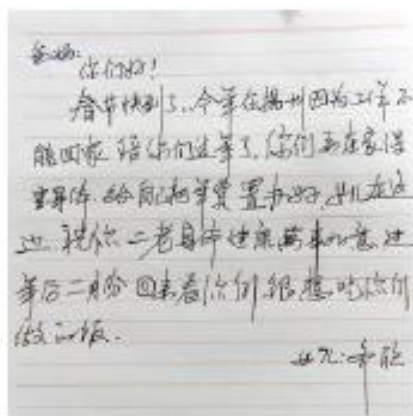 爸妈:
你们好!
春节快到了,今年在扬州因为工作不
能回家陪你们过年了,你们要在家保
重身体,给自己把年货置办好,女儿在这
边祝你二老身体健康万事如意,过
年后二月份回来看你们,很想吃你们
做的饭.
女儿: